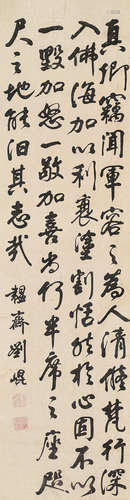 真卿竊聞軍容之為人清修梵行深
入佛海加以利衰塗割恬然於心固不以
一毀加怒一敬加喜尚何半席之座咫
尺之地能汩其志哉
韞齋劉崐